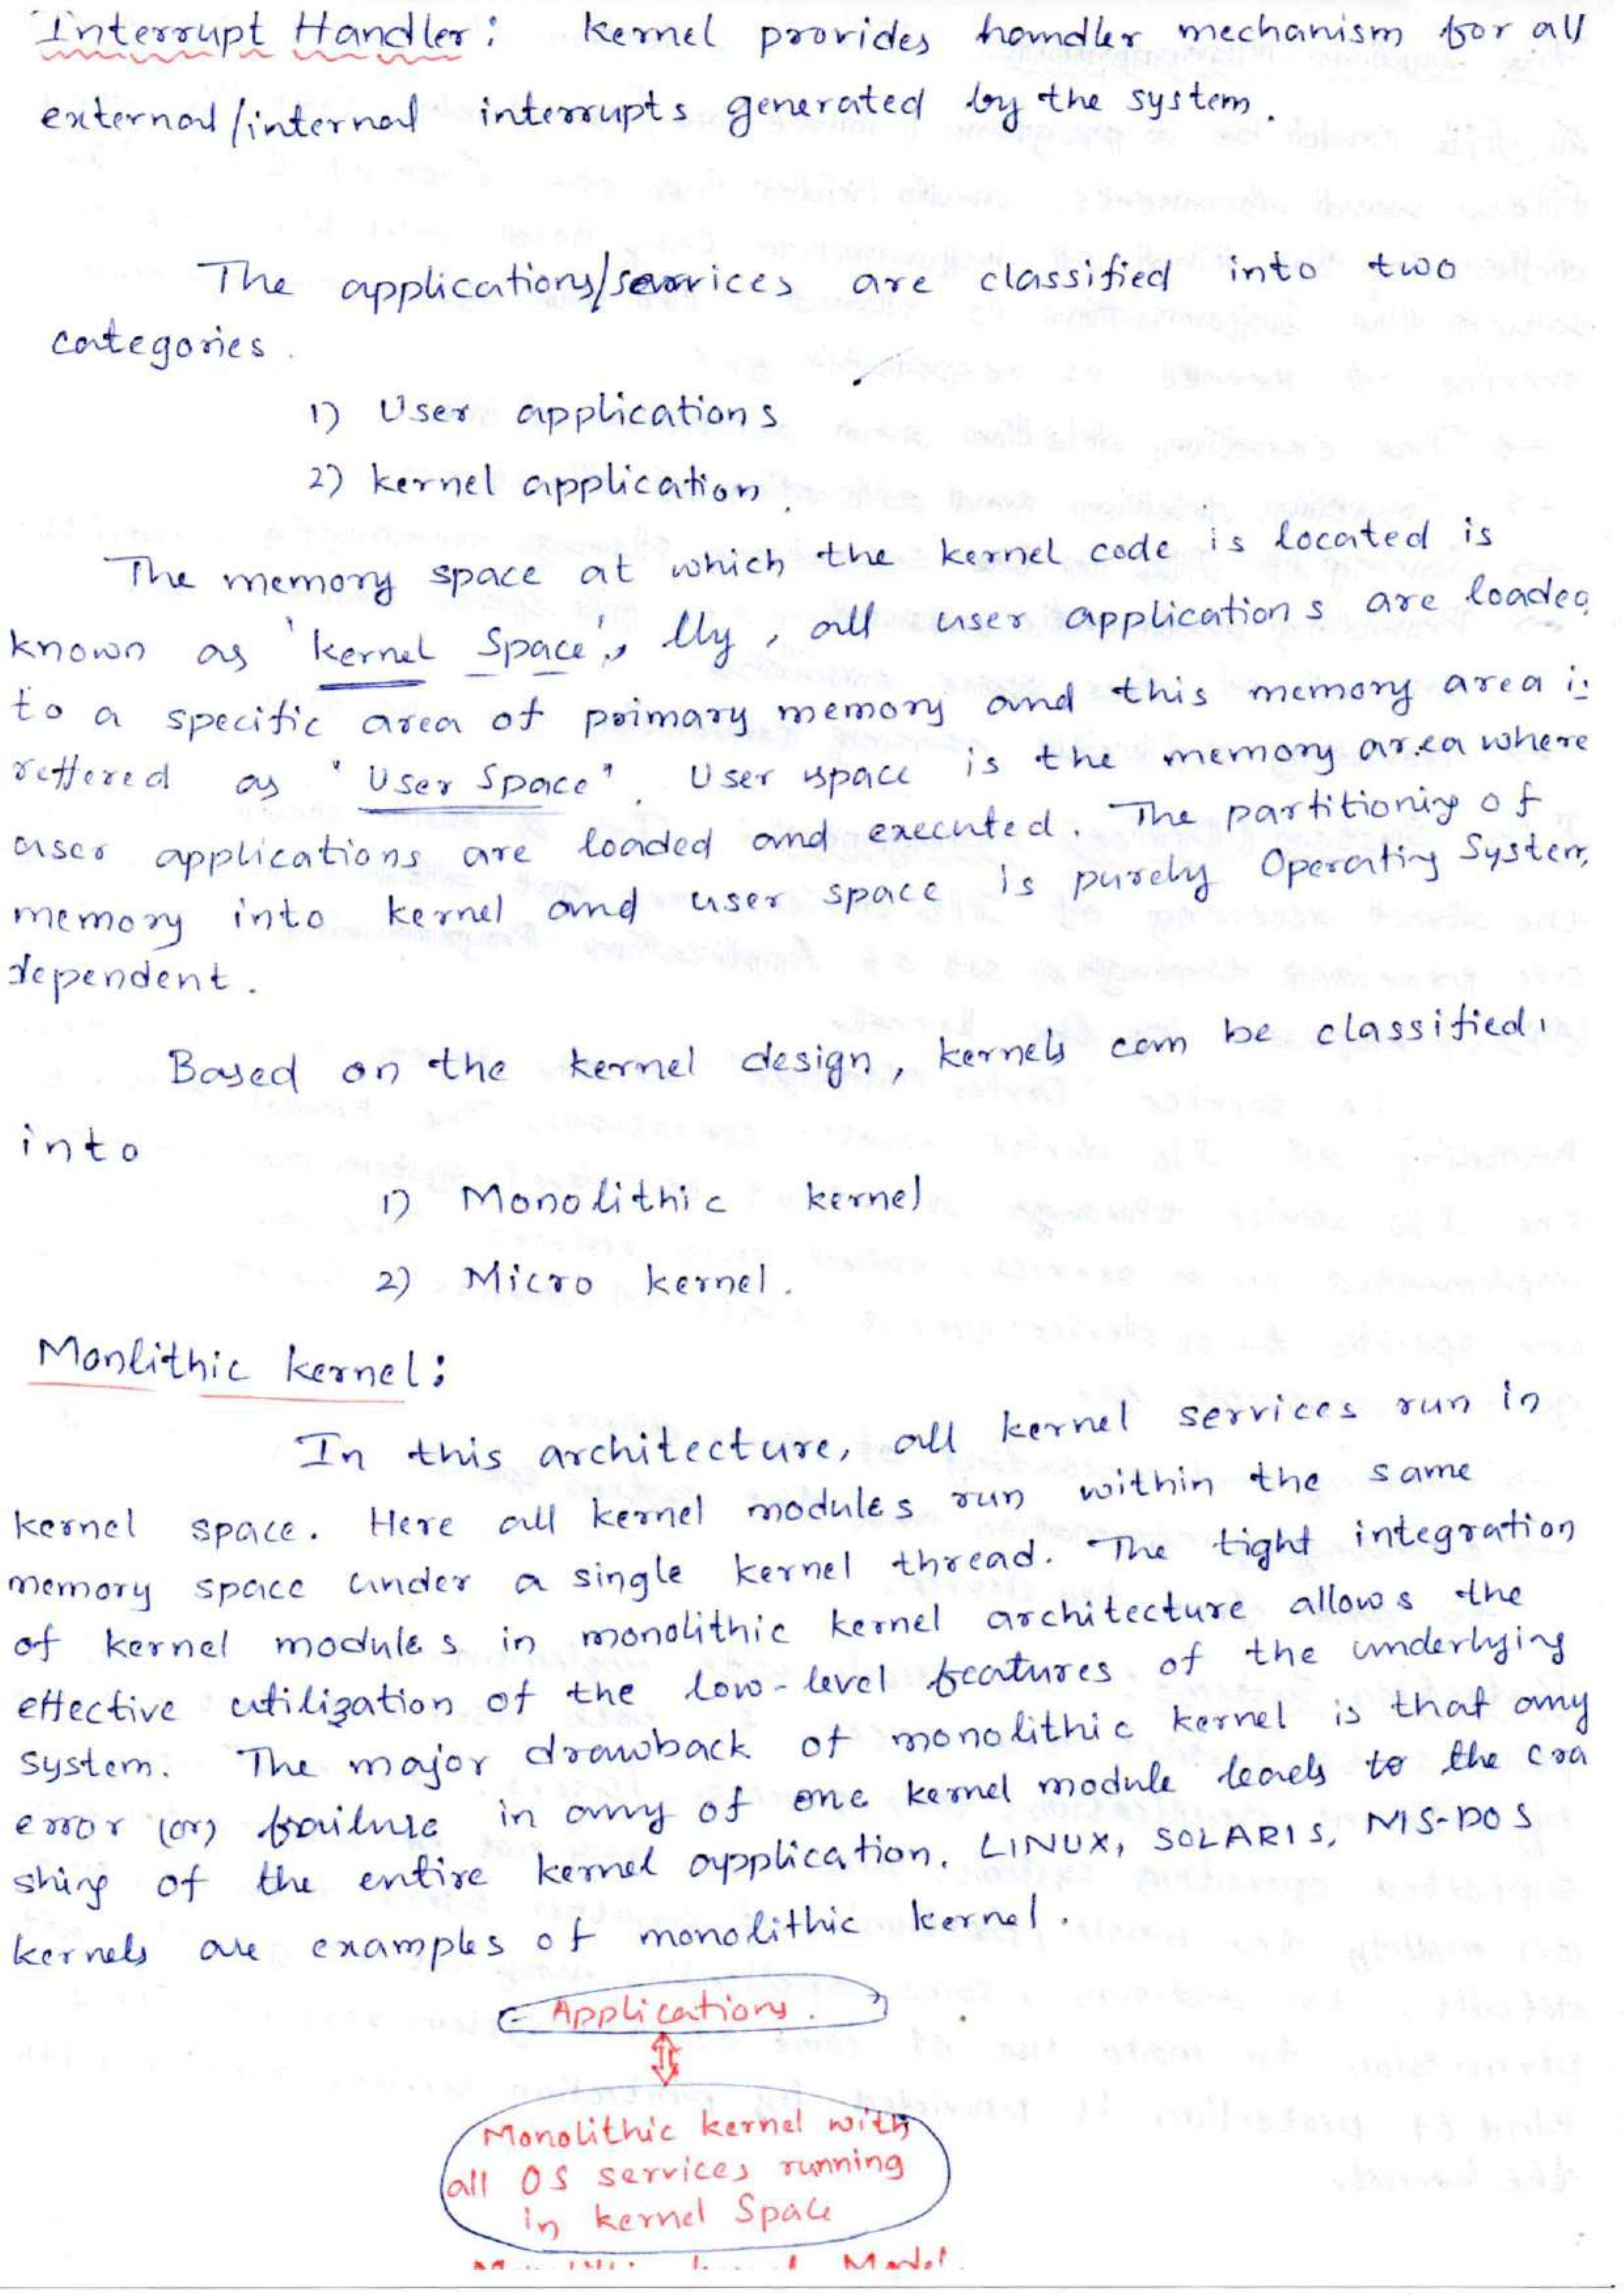 Interrupt Handler: kernel provides handler mechanism for all
external/internal interrupts generated by the system.
The applications/services are classified into two
categories.
1) User applications
2) kernel application.
The memory space at which the kernel code is located is
known as 'kernel Space'. lly, all user applications are loaded
to a specific area of primary memory and this memory area is
reffered as "User Space". User space is the memory area where
user applications are loaded and executed. The partitioning of
memory into kernel and user space is purely Operating System
dependent.
Based on the kernel design, kernels can be classified
into
1) Monolithic kernel
2) Micro kernel.
Monlithic kernel:
In this architecture, all kernel services run in
kernel space. Here all kernel modules run within the same
memory space under a single kernel thread. The tight integration
of kernel modules in monolithic kernel architecture allows the
effective utilization of the low-level features of the underlying
system. The major drawback of monolithic kernel is that any
error (or) failure in any of one kernel module leads to the cra
shing of the entire kernel application. LINUX, SOLARIS, MS-DOS
kernels are examples of monolithic kernel.
Applications.
Monolithic kernel with
all OS services running
in kernel Space
Model.